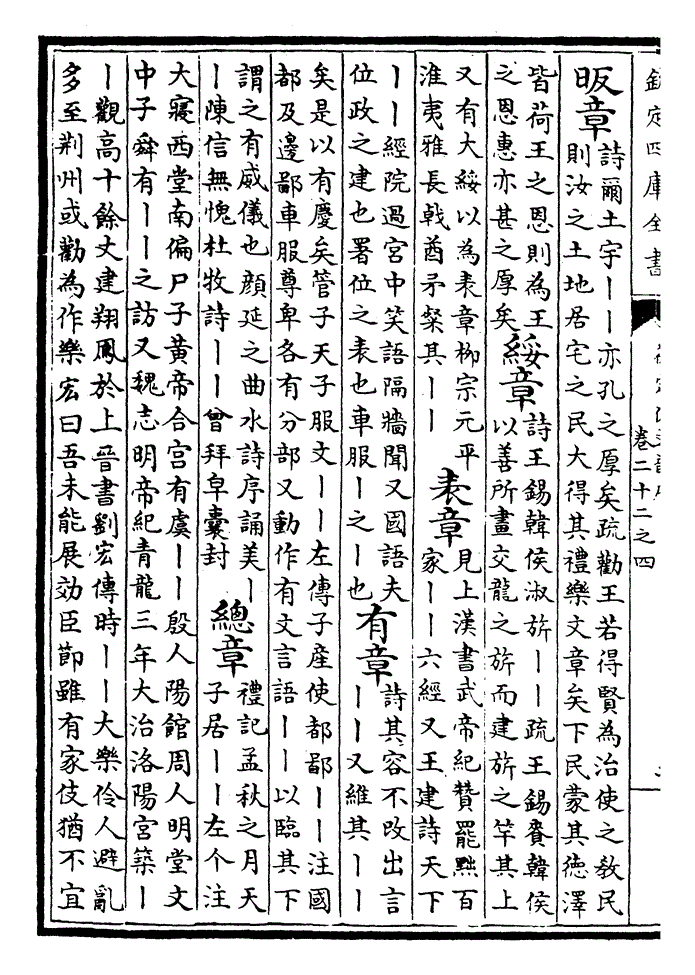 欽定四庫全書
卷二十二之四
昄章
詩爾土宇丨丨亦孔之厚矣疏勸王若得賢為治使之敎民
則汝之土地居宅之民大得其禮樂文章矣下民蒙其德澤
皆荷王之恩則為王
之恩惠亦甚之厚矣
綏章
詩王錫韓侯淑旂丨丨疏王錫賚韓侯
以善所畫交龍之旂而建旂之竿其上
又有大綏以為表章柳宗元平
淮夷雅長戟酋矛粲其丨丨
表章
見上漢書武帝紀贊罷黜百
家丨丨六經又王建詩天下
丨丨經院過宮中笑語隔牆聞又國語夫
位政之建也署位之表也車服丨之丨也
有章
詩其容不改出言
丨丨又維其丨丨
矣是以有慶矣管子天子服文丨丨左傳子產使都鄙丨丨注國
都及邊鄙車服尊卑各有分部又動作有文言語丨丨以臨其下
謂之有威儀也顔延之曲水詩序誦美丨
丨陳信無愧杜牧詩丨丨曾拜皁囊封
總章
禮記孟秋之月天
子居丨丨左个注
大寢西堂南偏尸子黃帝合宮有虞丨丨殷人陽館周人明堂文
中子舜有丨丨之訪又魏志明帝紀青龍三年大治洛陽宮築丨
丨觀高十餘丈建翔鳳於上晉書劉宏傳時丨丨大樂伶人避亂
多至荆州或勸為作樂宏曰吾未能展効臣節雖有家伎猶不宜